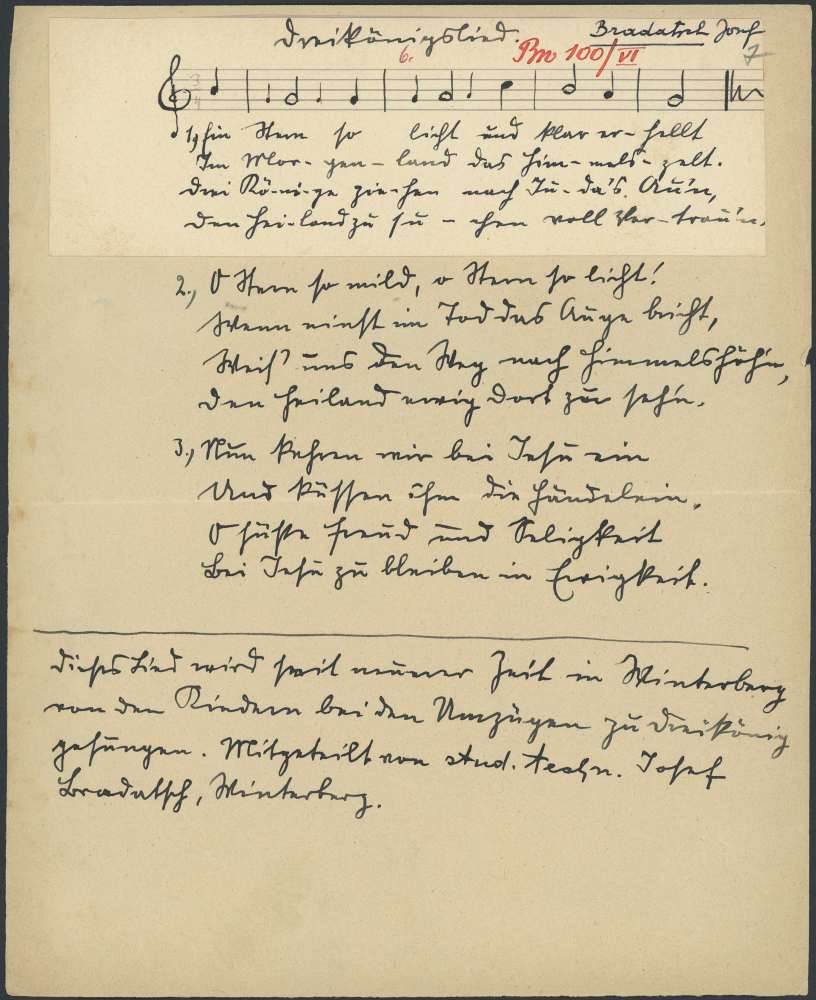 Dreikönigslied.
Bradatsch Josef
6.
Bm 100/VI
7
3/4
1, Ein Stern so licht und klar er-hellt
Im Mor-gen-land das Him-mels-zelt.
Drei Kö-ni-ge zie-hen nach Ju-da's Au'n,
Den Hei-land zu su-chen voll Ver-trau'n.
2., O Stern so mild, o Stern so licht!
Wenn einst im Tod das Auge bricht,
Weis' uns den Weg nach Himmelshöh'n,
Den Heiland ewig dort zu seh'n.
3., Nun kehren wir bei Jesu ein
Und küssen ihm die Händelein,
O süße Freud und Seligkeit
Bei Jesu zu bleiben in Ewigkeit.
Dieses Lied wird seit neuerer Zeit in Winterberg
von den Kindern bei den Umzügen zu Dreikönig
gesungen. Mitgeteilt von stud. techn. Josef
Bradatsch, Winterberg.